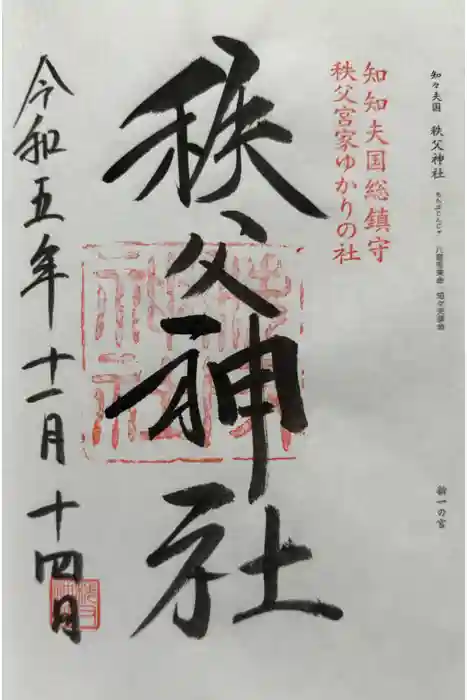 知々夫国 秩父神社 ちちぶじんじゃ 八意思兼命 知々夫彦命
新一の宮
知知夫国総鎮守
秩父宮家ゆかりの社
秩父神社
令和五年十一月十四日